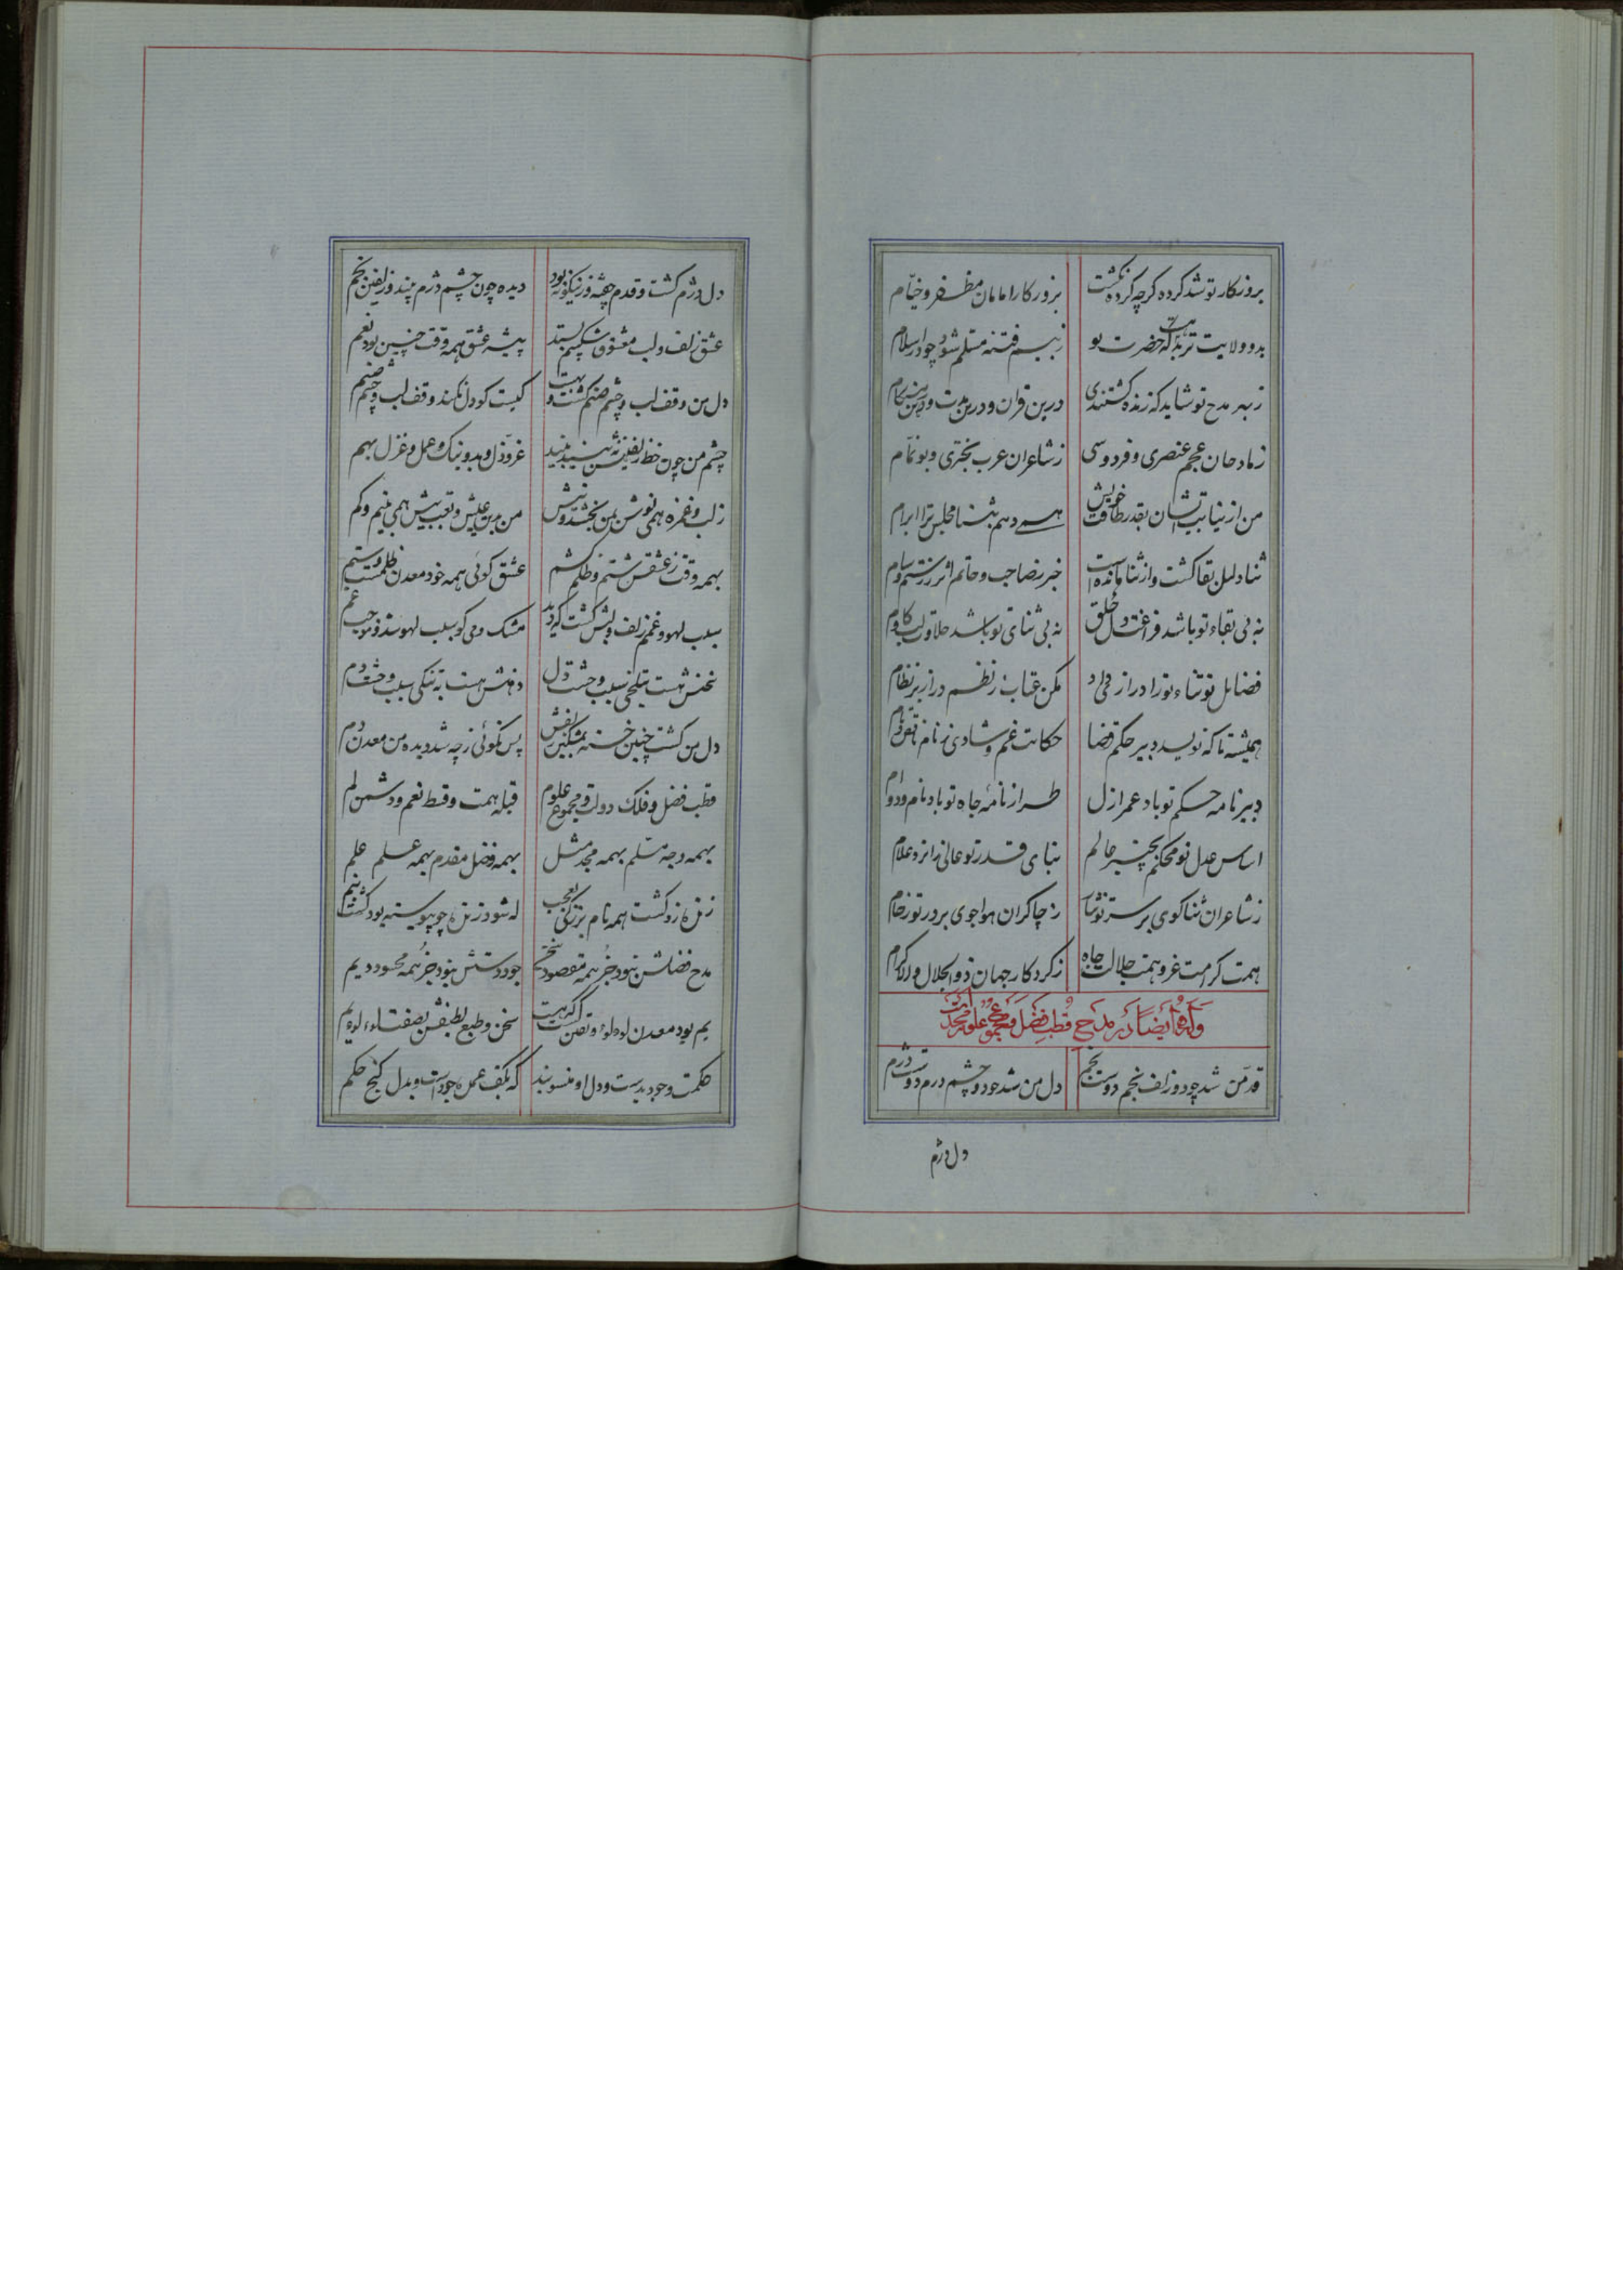 بروزکار تو شد کرده کرچه کرده نکشت بزورکارامامان مظفر و خیام
بدو ولایت ترمذ که حضرت تو ز بیم فتنه مسلم شود چو دار سلام
زبهر مدح تو شاید که زنده کشتندی درین قران و درین مدت و درین هنکام
زمادحان عجم عنصری و فردوسی زشاعران عرب بحتری و بوتمام
من از نیابت ایشان بقدر طاقت خویش همی دهم بثنا مجلس ترا ابرام
ثنا دلیل بقا کشت و از ثنا مانده است خبر ز صاحب و حاتم اثر ز رستم و سام
نه بی بقاء تو باشد فراغت دل خلق نه بی ثنای تو باشد حلاوت لب و کام
فضایل تو ثناء تو را دراز کرد مکن عتاب ز نظم دراز بر نظام
همیشه تا که نویسد دبیر حکم قضا حکایت غم و شادی ز نام
دبیر نامه حکم تو باد عمر ازل طراز نامهٔ جاه تو باد نام و دوام
اساس عدل تو محکم بخیر عالم بنای قدر تو عالی ز ایزد علام
ز شاعران ثناکوی بر سر تو نثار ز چاکران هواجوی بر در تو زحام
همت کرامت عز و همت جلالت جاه ز کردکار جهان ذو الجلال و الاکرام
وله ایضا در مدح قطب فضل و مجموع علوم
قد من شد چو دو زلف بخم دوست بخم دل من شد چو دو چشم دژم دوست دژم
دل دژم
دل دژم کشت و قدم چفته و زینکونه بود دیده چون چشم دژم بیند و زلفین بخم
عشق زلف و لب معشوق شکیبم بستد پیشهٔ عشق همه وقت چنین بود نعم
دل من وقف لب و چشم صنم کشت و بهست کیست کو دل نکند وقف لب و چشم صنم
چشم من چون خط زلفینش ببیند بیند عز و ذل و بد و نیک و عمل و غزل بهم
ز لب و غمزه همی نوش بمن بخشد و نیش من بدین عیش و تعب بیش همی بینم و کم
بهمه وقت ز عشقش ستم و ظلم کشم عشق کوئی همه خود معدن ظلمست و ستم
سبب لهو و غمم زلف و لبش کشت که دید مشک و می کو سبب لهو شد و موجب غم
سخنش هست بتلخی سبب وحشت دل دهنش هست بتنکی سبب وحشت دم
دل من کشت چنین خسته بمشکین زلفش پس نکوئی ز چه شد دیدهٔ من معدن دم
قطب فضل و فلک دولت و مجموع علوم قبلهٔ همت و قسط نعم و دشمن لم
بهمه وجه مسلم بهمه مجد مثل بهمه فضل مقدم بهمه علم علم
همه نام بزرکی چو پیوسته بود کشت
مدح فضلش نبود جز همه مقصود سخن جود دستش نبود جز همه محسود دیم
یم بود معدن لولو و یقین است که هست سخن و طبع لطیفش بصفت لولو و یم
حکمت و جود بدست و دل او منسوبند که بکف عمدهٔ جودست و بدل کنج حکم